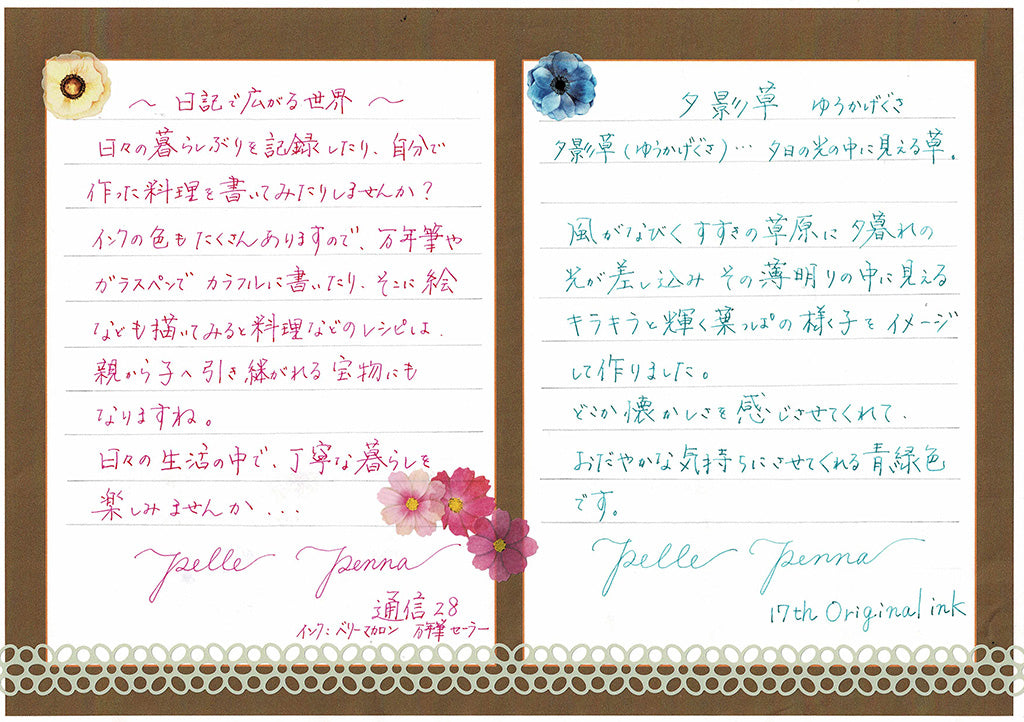 ～ 日記で広がる世界 ～
日々の暮らしぶりを記録したり、自分で
作った料理を書いてみたりしませんか？
インクの色もたくさんありますので、万年筆や
ガラスペンで カラフルに書いたり、そこに絵
なども描いてみると料理などのレシピは、
親から子へ引き継がれる宝物にも
なりますね。
日々の生活の中で、丁寧な暮らしを
楽しみませんか...
Pelle Penna
通信28
インク：ベリーマカロン 万年筆 セーラー
夕影草 ゆうかげぐさ
夕影草(ゆうかげぐさ)… 夕日の光の中に見える草。
風がなびくすすきの草原に夕暮れの
光が差し込み その薄明りの中に見える
キラキラと輝く葉っぱの様子をイメージ
して作りました。
どこか懐かしさを感じさせてくれて、
おだやかな気持ちにさせてくれる青緑色
です。
Pelle Penna
17th Original ink